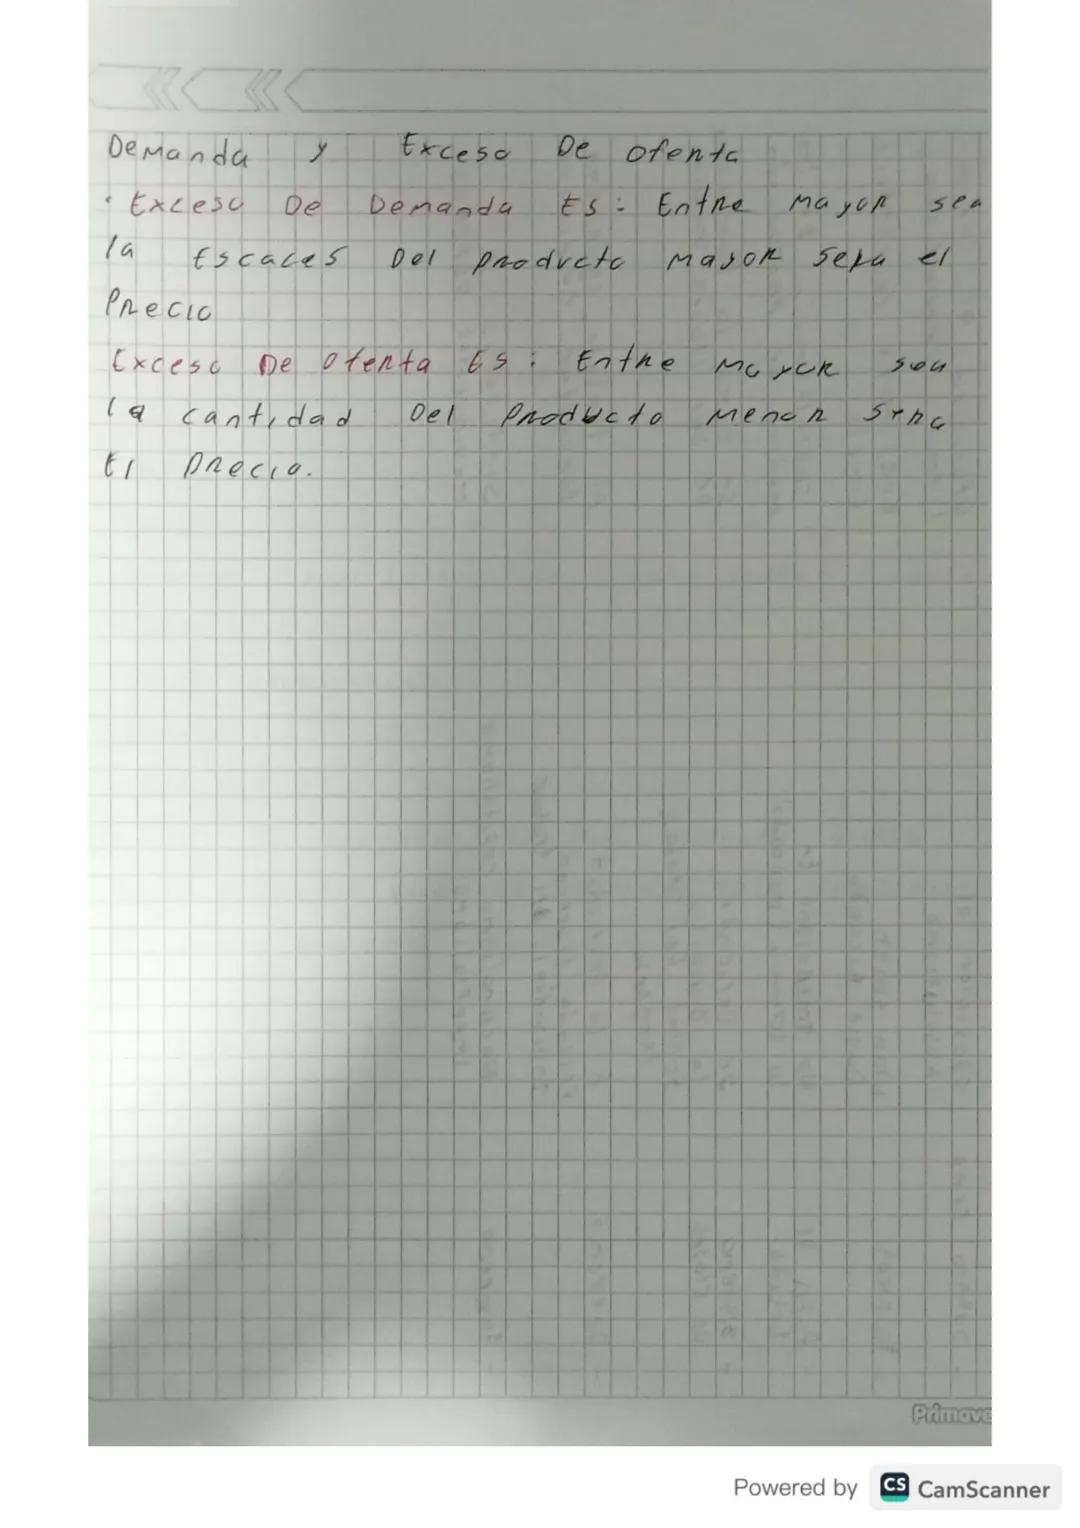 Demanda y Exceso De ofenta
• Exceso De Demanda Es: Entre mayor sea
la Escaces Del producto mayor sera el
Precio
Exceso De ofenta Es: Entre mayor sea
la cantidad Del Producto menor sera
El precio.
Primave
Powered by CS CamScanner